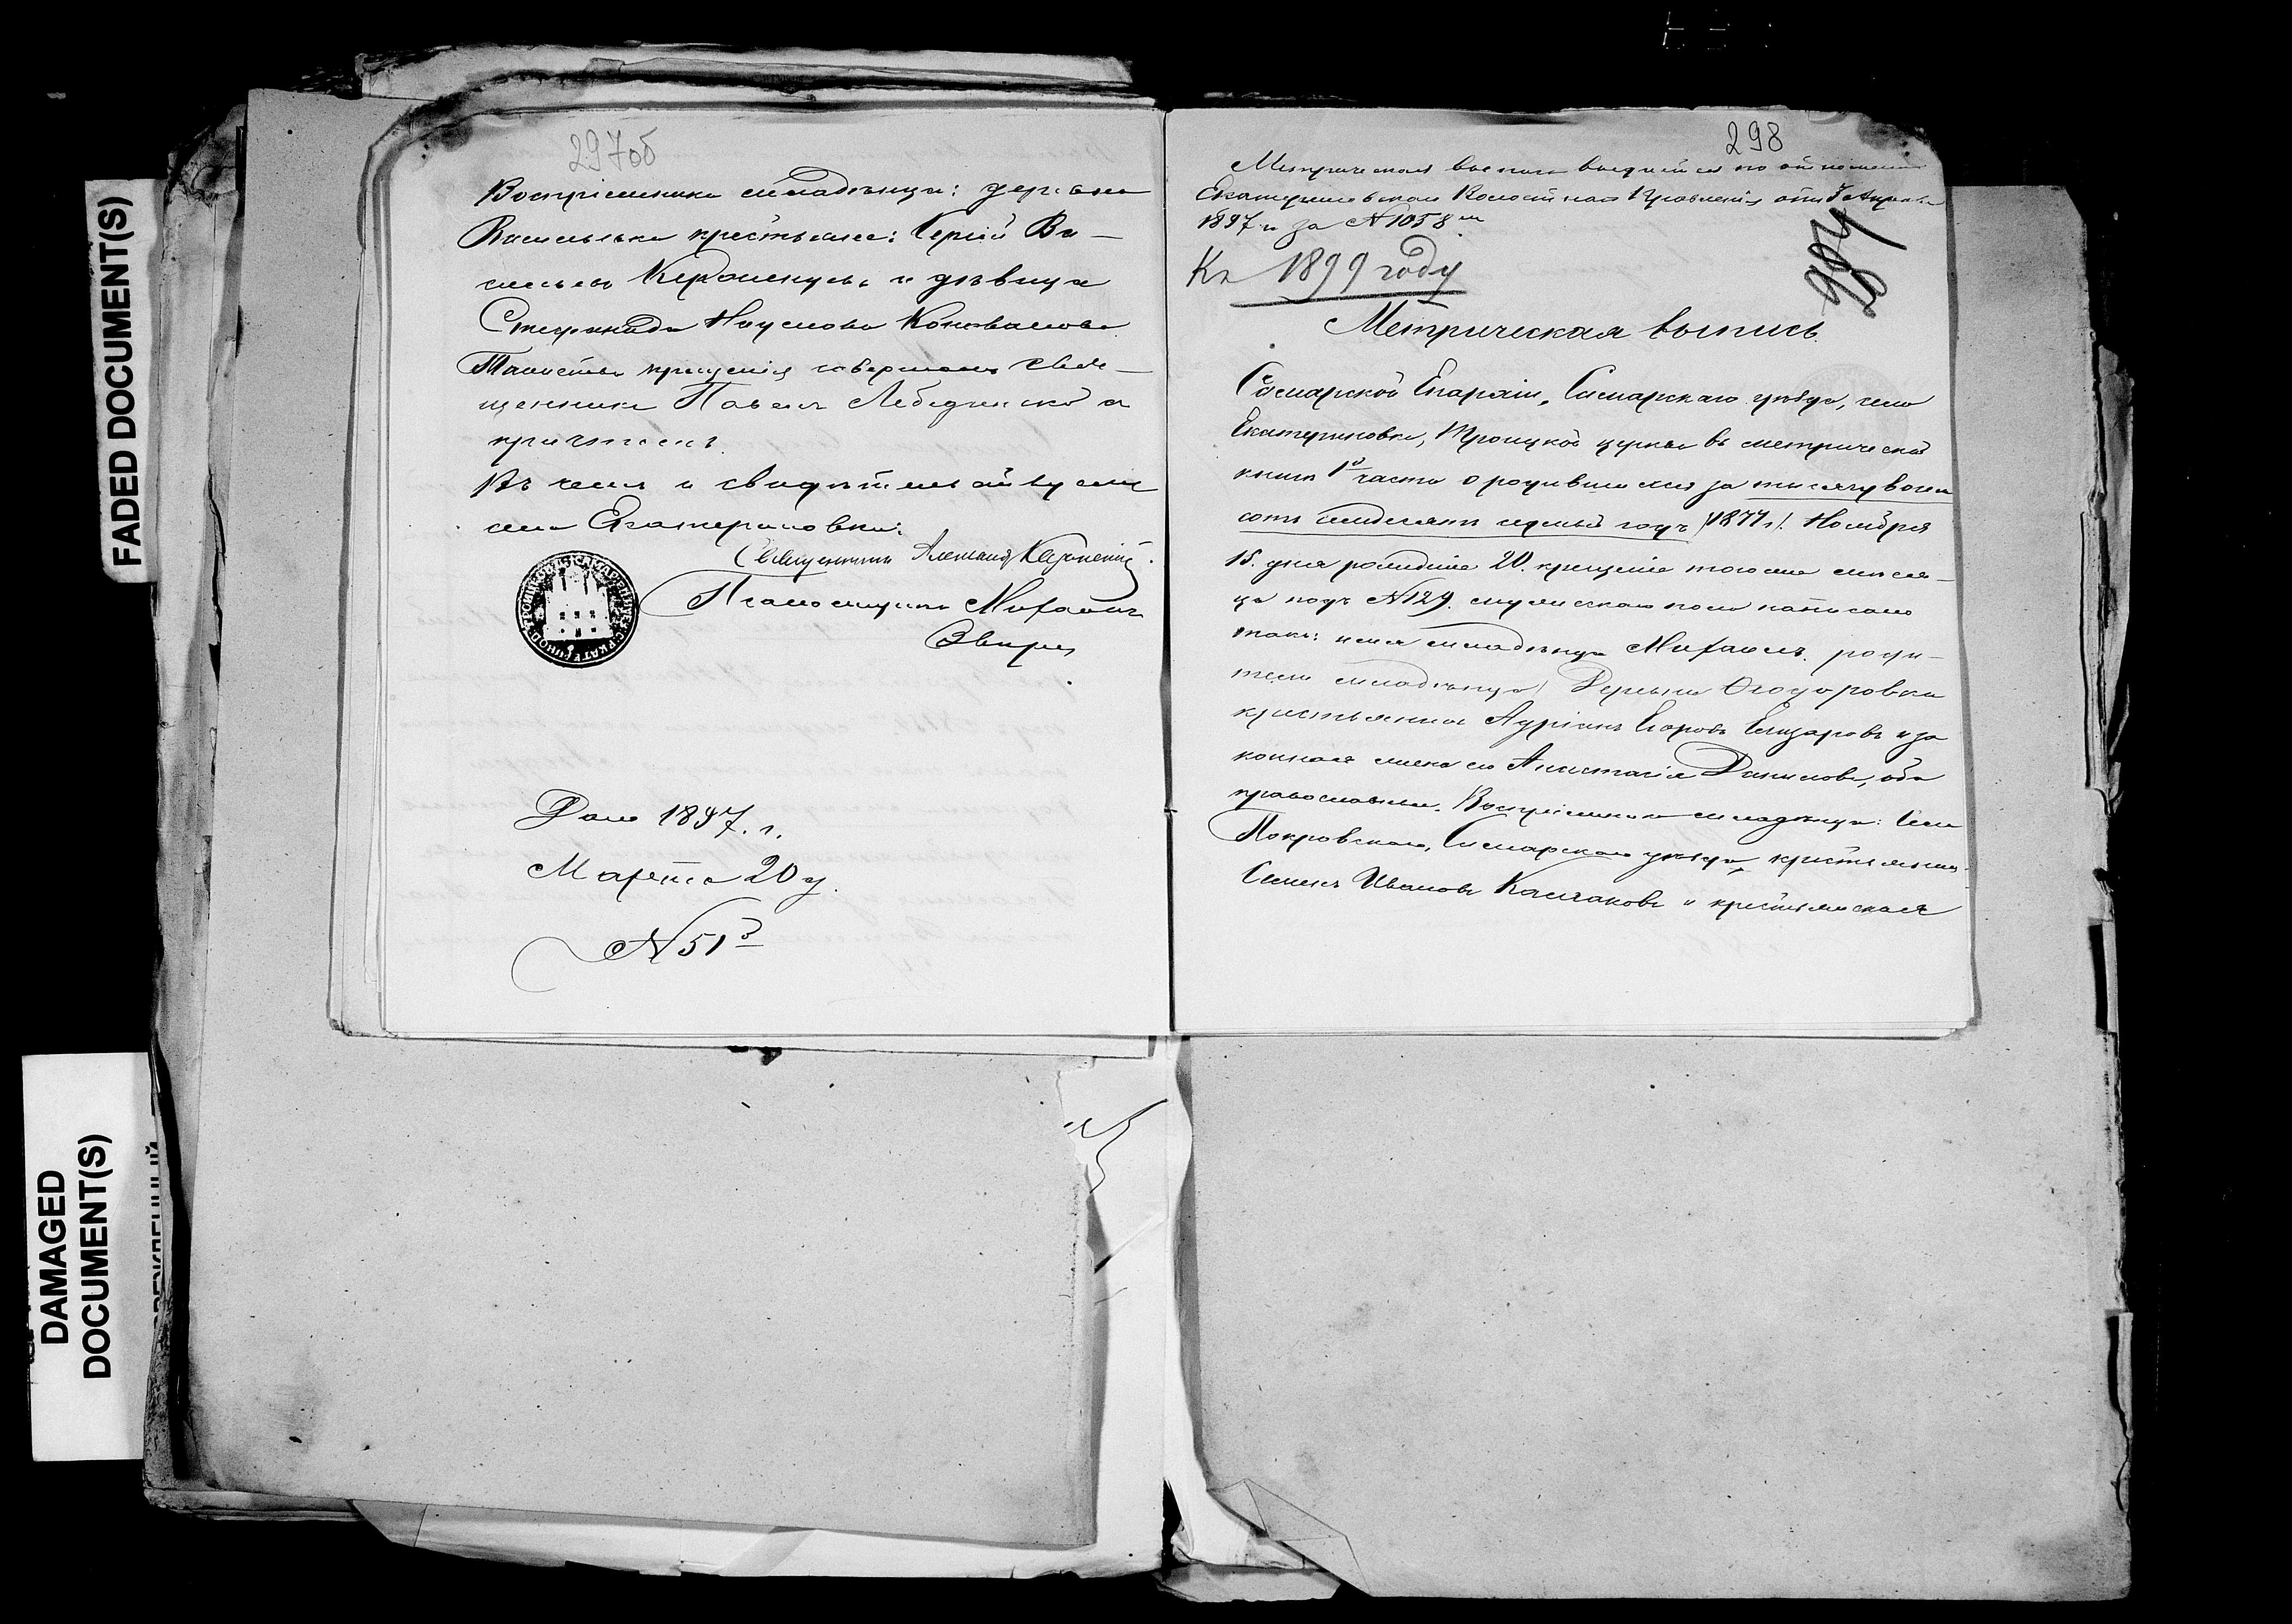 FADED DOCUMENT(S)
DAMAGED
DOCUMENT(S)
297об
Воспріемники младенца: деревни
Васильевки крестьяне: Сергій Ва-
сильевъ и дѣвица
Стефанида Наумова Коновалова
Таинство крещенія совершалъ Свя-
щенникъ Павелъ Лебединскій съ
причтомъ.
Въ чемъ и свидѣтельствуемъ
село Екатериновка:
Священникъ
Псаломщикъ Михаилъ
Дано 1897. г.
Марта 20 д.
№ 51
298
Метрическая выпись выдается по отношенію
Екатериновскаго Волостнаго Правленія отъ Апрѣля
1897 г. за № 1058
Къ 1899 году
Метрическая выпись.
Самарской Епархіи, Самарскаго уѣзда, села
Екатериновки, Троицкой церкви въ метрической
книгѣ 1й части о родившихся за тысяча восем
сотъ семьдесятъ седьмый годъ (1877 г.). Ноября
15. дня рожденіе 20. крещеніе того же мѣся-
ца подъ № 129. мужескаго пола написано
такъ: имя младенца Михаилъ. роди-
тели младенца: Деревни Ѳедоровки
крестьянинъ Адріанъ Егоровъ Елизаровъ и за
конная жена его Анастасія Данилова, оба
православные. Воспріемники младенца: Села
Покровскаго, Самарскаго уѣзда, крестьянинъ
Семенъ Ивановъ Колчаковъ и крестьянская